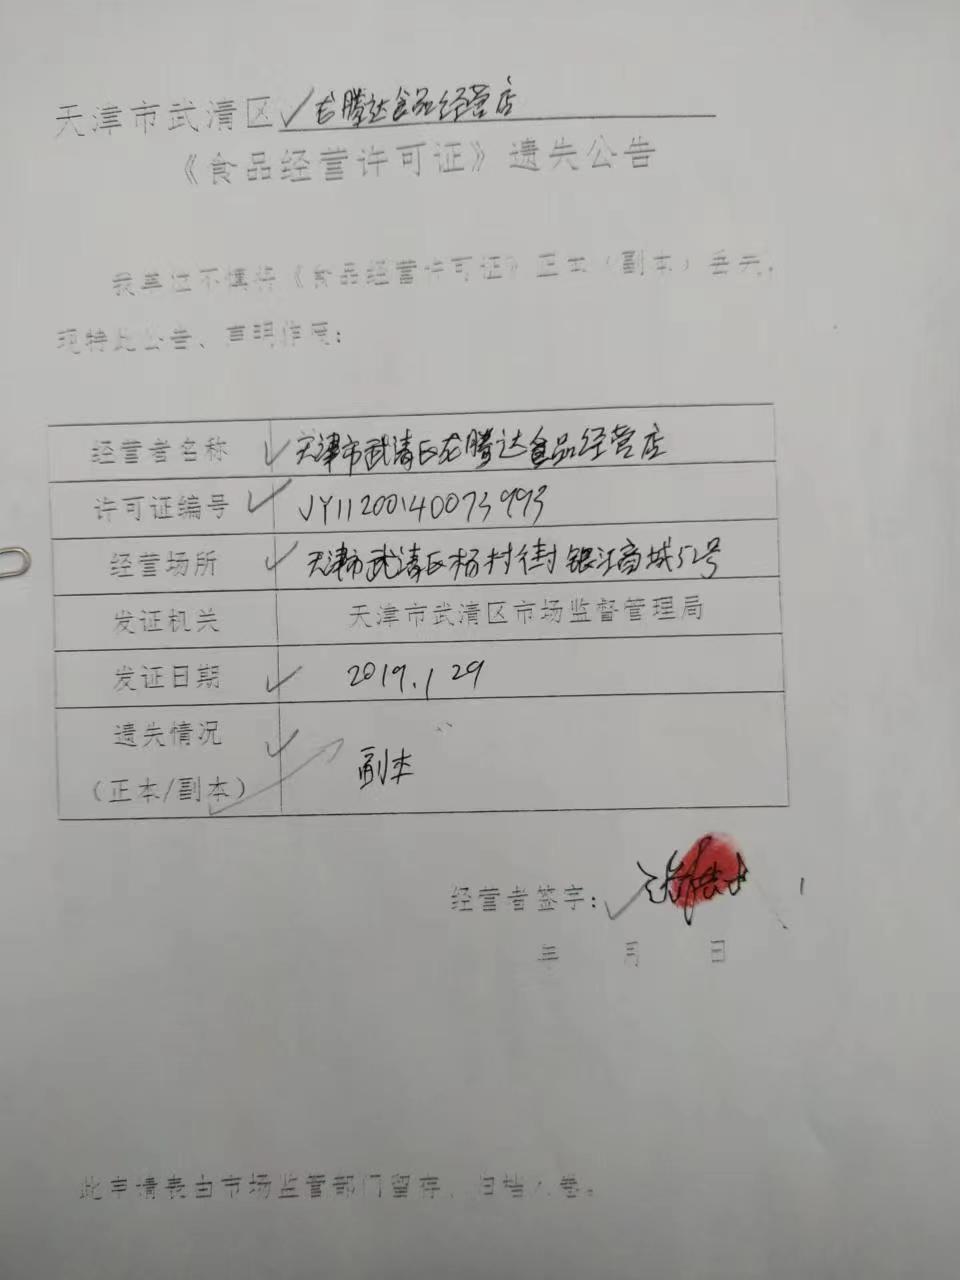 天津市武清区龙腾达食品经营店
《食品经营许可证》遗失公告
我单位不慎将《食品经营许可证》正本（副本）丢失，
现特此公告、声明作废：
经营者名称 天津市武清区龙腾达食品经营店
许可证编号 JY11200140073993
经营场所 天津市武清区杨村街银江商城52号
发证机关 天津市武清区市场监督管理局
发证日期 2019.1 29
遗失情况
（正本/副本） 副本
经营者签字：
年 月 日
此申请表由市场监管部门留存、归档入卷。